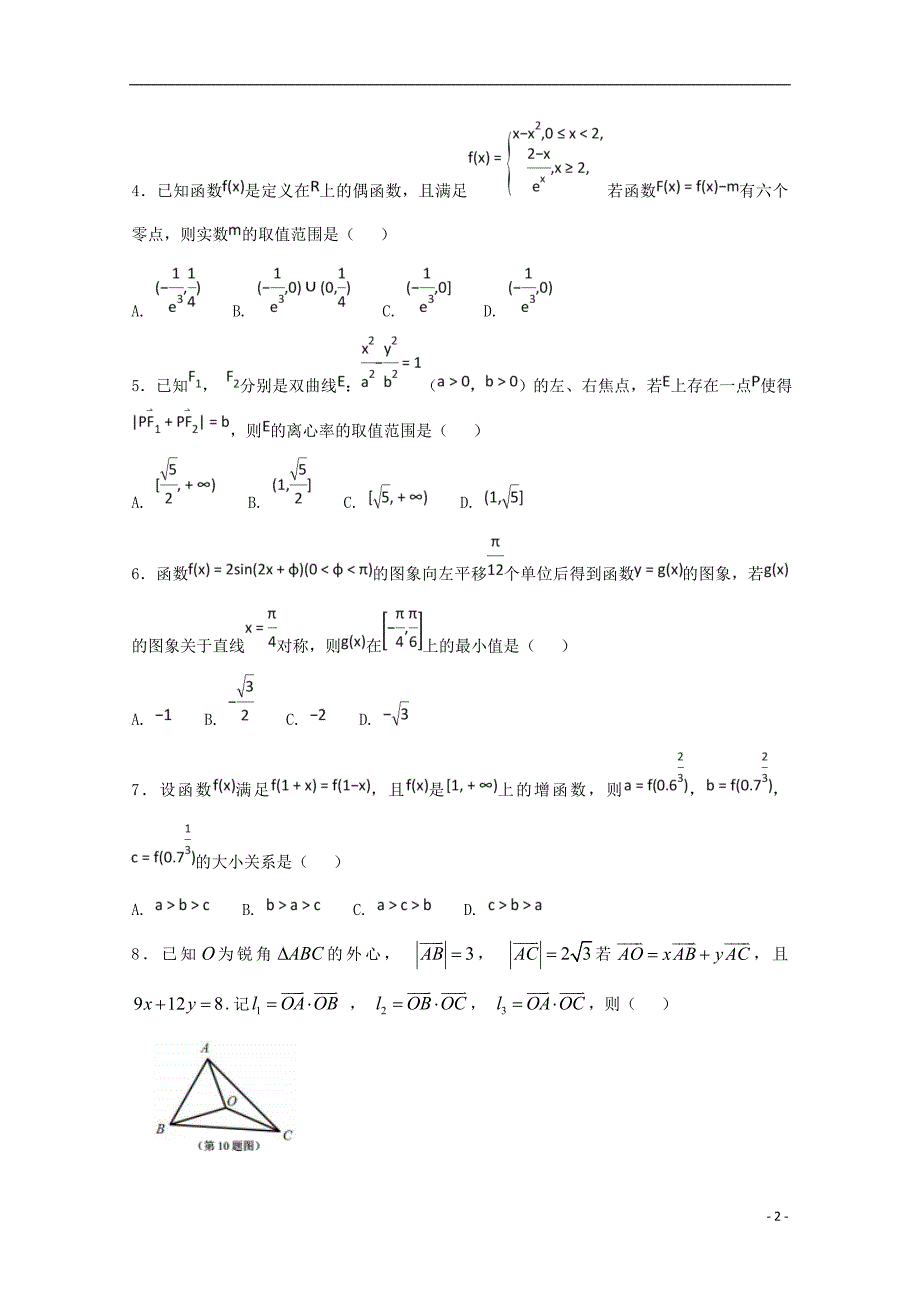 4. 已知函数f(x)是定义在R上的偶函数，且满足f(x) = { x−x²,0 ≤ x < 2, (2−x)/e^x ,x ≥ 2, 若函数F(x) = f(x)−m有六个
零点，则实数m的取值范围是（ ）
A. (−1/e³,1/4) B. (−1/e³,0) ∪ (0,1/4) C. (−1/e³,0] D. (−1/e³,0)
5. 已知F₁， F₂分别是双曲线E：x²/a²−y²/b² = 1（a > 0，b > 0）的左、右焦点，若E上存在一点P使得
|PF₁ + PF₂| = b，则E的离心率的取值范围是（ ）
A. [√5/2, + ∞) B. (1,√5/2] C. [√5, + ∞) D. (1,√5]
6. 函数f(x) = 2sin(2x + φ)(0 < φ < π)的图象向左平移π/12个单位后得到函数y = g(x)的图象，若g(x)
的图象关于直线x = π/4对称，则g(x)在[−π/4,π/6]上的最小值是（ ）
A. −1 B. −√3/2 C. −2 D. −√3
7. 设函数f(x)满足f(1 + x) = f(1−x)，且f(x)是[1, + ∞)上的增函数，则a = f(0.6^(2/3))，b = f(0.7^(2/3))，
c = f(0.7^(1/3))的大小关系是（ ）
A. a > b > c B. b > a > c C. a > c > b D. c > b > a
8. 已知O为锐角ΔABC的外心， |AB| = 3， |AC| = 2√3若AO = xAB + yAC，且
9x+12y=8. 记l₁ = OA·OB ， l₂ = OB·OC， l₃ = OA·OC，则（ ）
A
O
B
C
(第10题图)
- 2 -